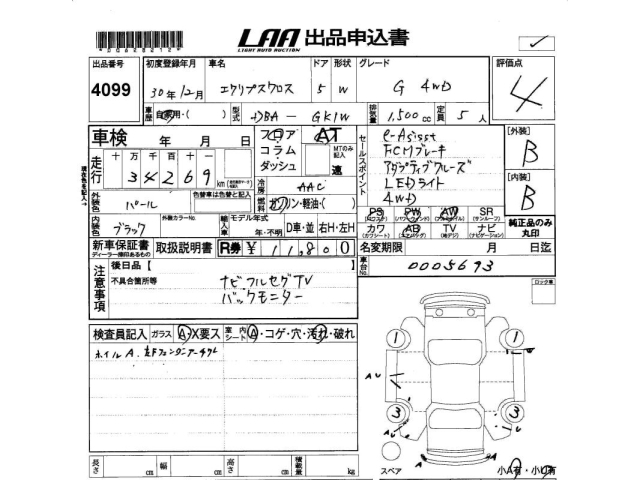 LAA 出品申込書
LIGHT AUTO AUCTION
出品番号 初度登録年月 車名 ドア 形状 グレード 評価点
4099 30年12月 エクリプスクロス 5 W G 4WD 4
車歴 自家用・( ) 型式 DBA - GK1W 排気量 1,500cc 定員 5人
車検 年 月 日 フロア AT
コラム MTのみ記入
ダッシュ 速
走行 十 万 千 百 十 一
34269 km
冷房 AAC
外装色 パール 色替車は色替と記入 燃料 ガソリン・軽油・( )
内装色 ブラック 外装カラーNo. 輸入車 モデル年式 年・不明 D車・並 右H・左H
セールスポイント
e-Assist
FCMブレーキ
アダプティブクルーズ
LEDライト
4WD
[外装]
B
[内装]
B
PS PW AW SR
(パワーウィンドウ) (サンルーフ)
カワ AB TV ナビ
(カワシート) (エアバッグ) (地デジ) (ナビゲーション)
純正品のみ丸印
新車保証書 取扱説明書 R券 ¥ 11,800
ディーラー捺印あるもの
名変期限 月 日迄
車台No. 0005693
注意事項
後日品【 】
不具合箇所等
ナビ フルセグTV
バックモニター
ロック車
検査員記入 ガラス A・X要ス 室内シート A・コゲ・穴・汚れ・破れ
ホイルA.
1 1
3 3
A U
A U
A
A
長さ cm 幅 cm 高さ cm 積載量 kg
スペア 小A有・小U有